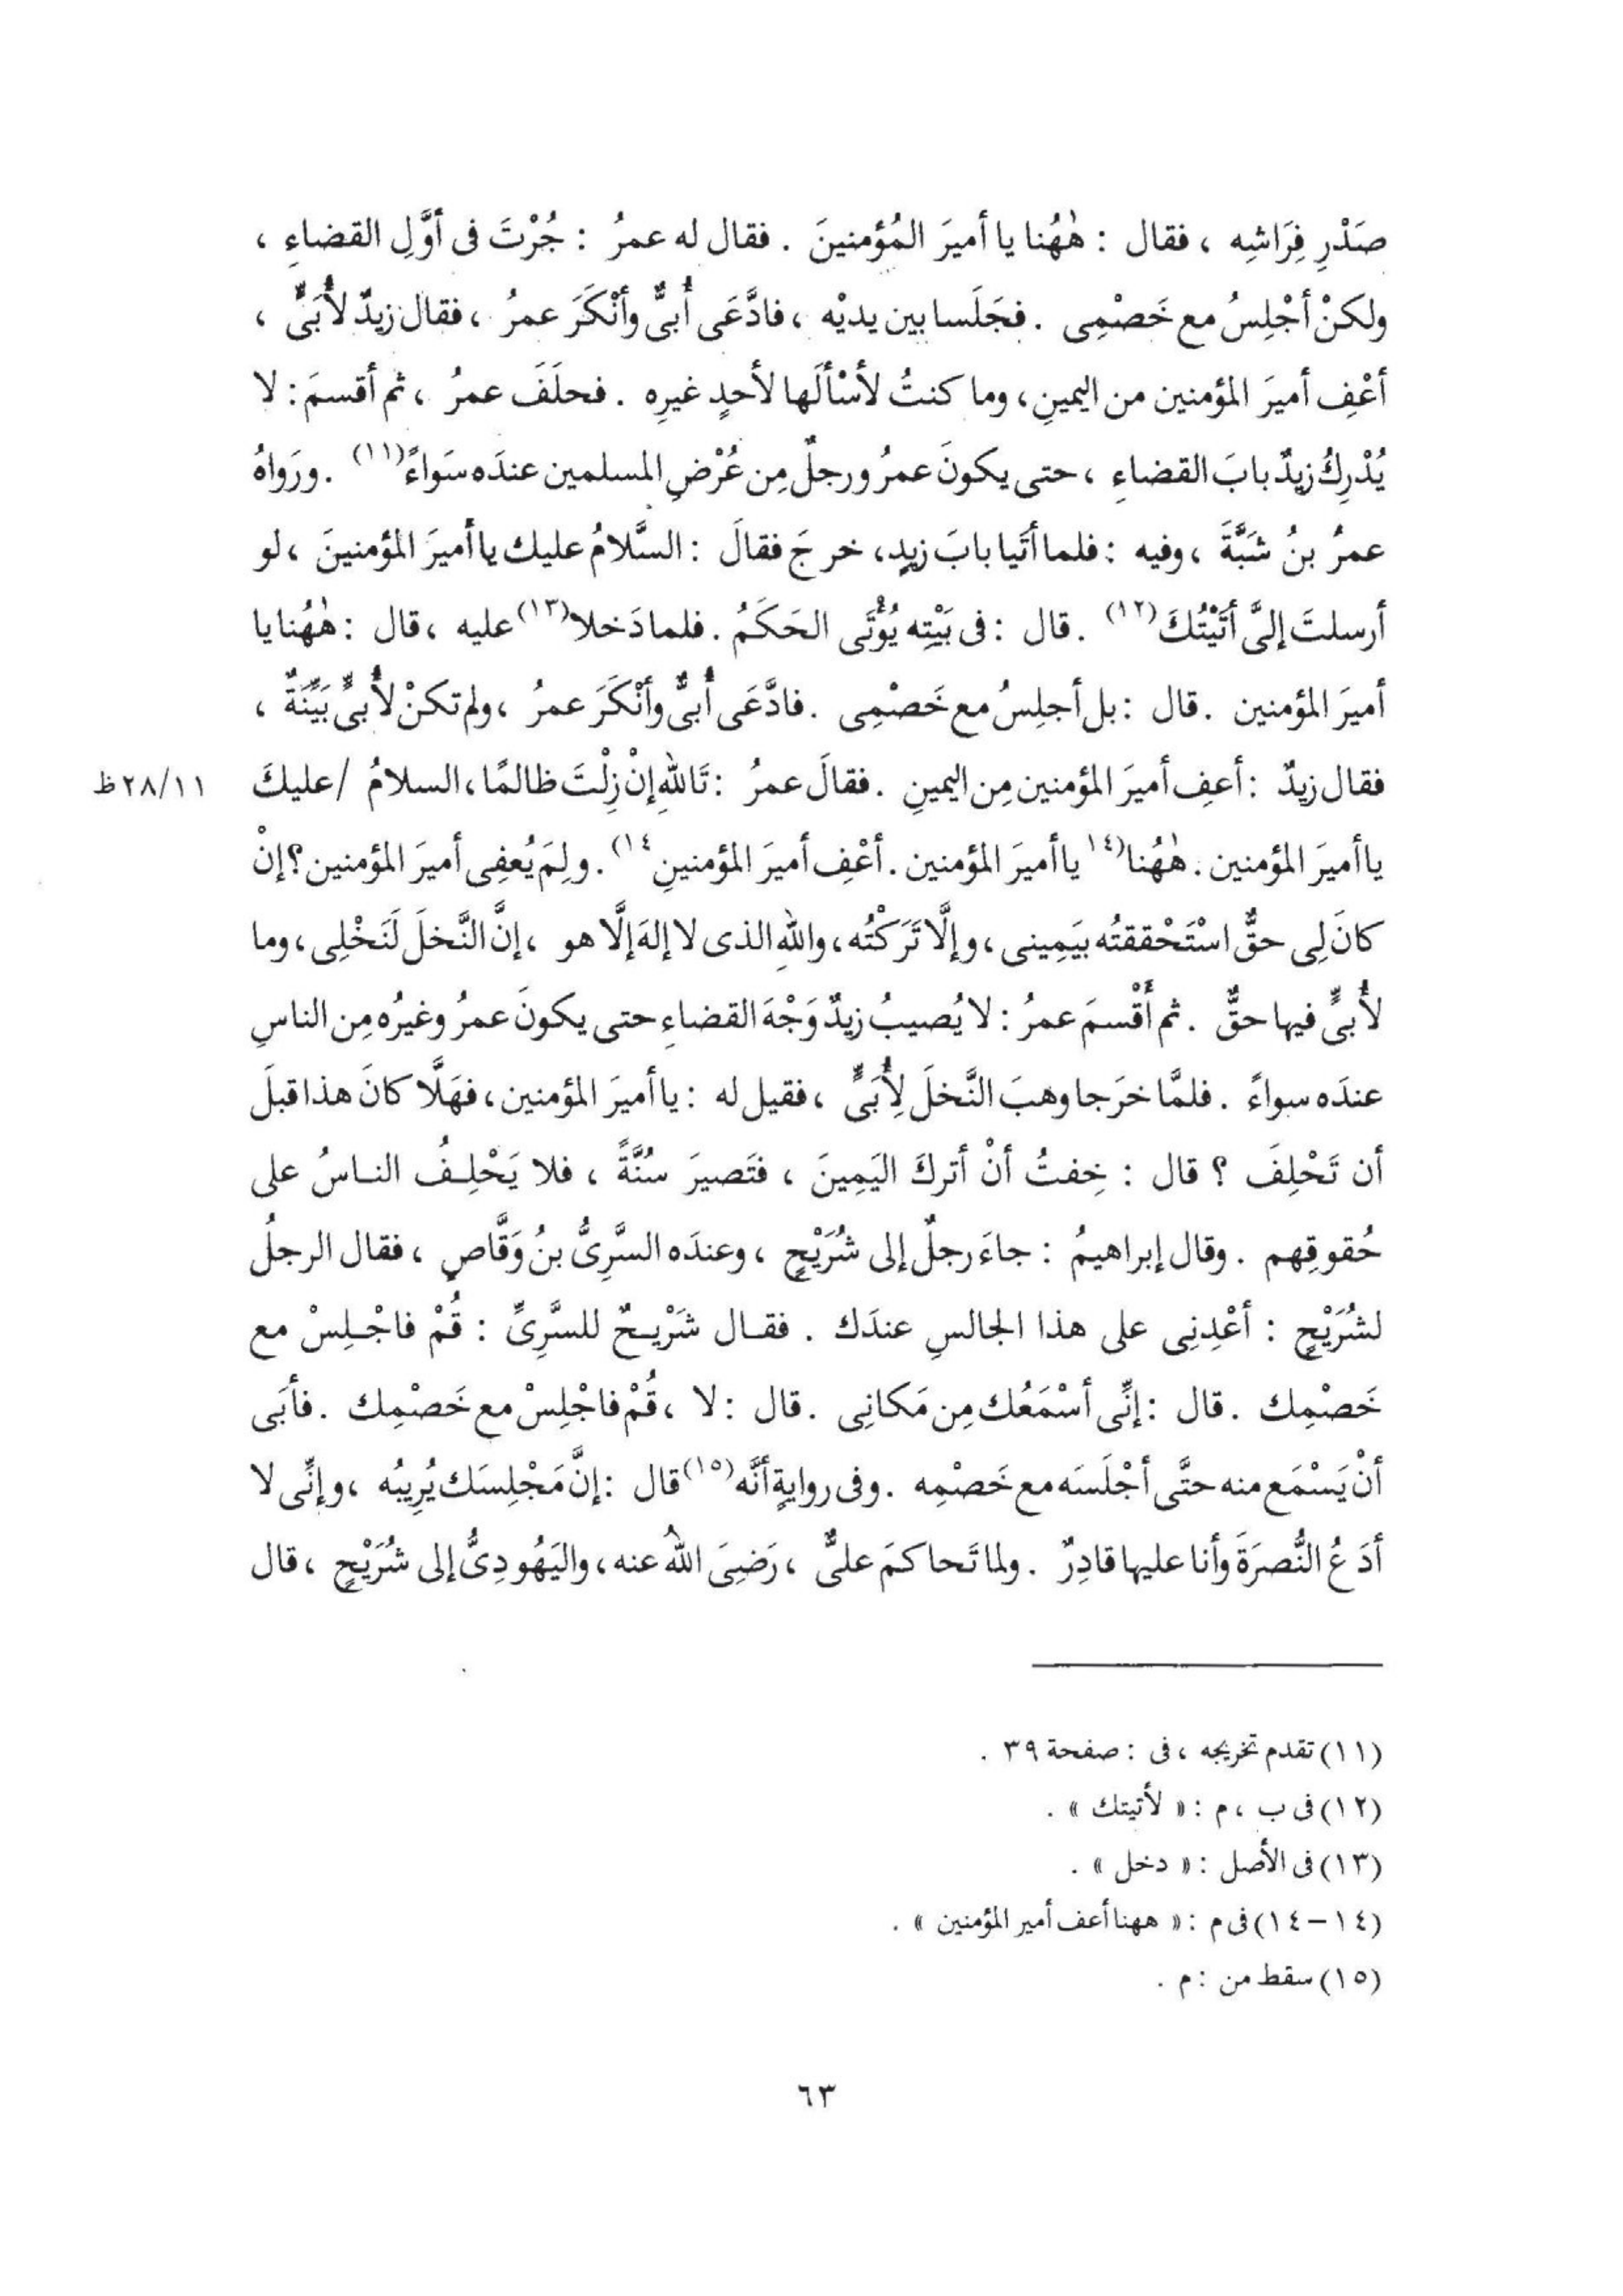 صَدْرِ فِرَاشِه ، فقال : هٰهُنا يا أميرَ المُؤمنينَ . فقال له عمرُ : جُرْتَ فى أوَّلِ القضاءِ ،
ولكنْ أجْلِسُ مع خَصْمِى . فجَلَسا بين يديْه ، فادَّعَى أُبىٌّ وأنْكَرَ عمرُ ، فقال زيدٌ لأُبَىٍّ ،
أعْفِ أميرَ المؤمنين من اليمينِ ، وما كنتُ لأسْألَها لأحدٍ غيرِه . فحلَفَ عمرُ ، ثم أقسمَ : لا
يُدْرِكُ زيدٌ بابَ القضاءِ ، حتى يكونَ عمرُ ورجلٌ مِن عُرْضِ المسلمين عندَه سَواءً(١١) . ورَواهُ
عمرُ بنُ شَبَّةَ ، وفيه : فلما أتَيا بابَ زيدٍ ، خرجَ فقالَ : السَّلامُ عليك يا أميرَ المؤمنينَ ، لو
أرسلتَ إلىَّ أتَيْتُكَ(١٢) . قال : فى بَيْتِه يُؤْتَى الحَكَمُ . فلما دَخلا(١٣) عليه ، قال : هٰهُنا يا
أميرَ المؤمنين . قال : بل أجلِسُ مع خَصْمِى . فادَّعَى أُبىٌّ وأنْكَرَ عمرُ ، ولم تكنْ لأُبىٍّ بَيِّنَةٌ ،
فقال زيدٌ : أعفِ أميرَ المؤمنين مِن اليمينِ . فقالَ عمرُ : تَاللهِ إنْ زِلْتَ ظالمًا ، السلامُ /عليكَ ٢٨/١١ظ
يا أميرَ المؤمنين . هٰهُنا(١٤ يا أميرَ المؤمنين . أعْفِ أميرَ المؤمنينِ١٤) . ولِمَ يُعفِى أميرَ المؤمنين ؟ إنْ
كانَ لِى حقٌّ اسْتَحْققتُه بيَمِينى ، وإلَّا تَرَكْتُه ، واللهِ الذى لا إلهَ إلَّا هو ، إنَّ النَّخلَ لَنَخْلِى ، وما
لأُبىٍّ فيها حقٌّ . ثم أَقْسمَ عمرُ : لا يُصيبُ زيدٌ وَجْهَ القضاءِ حتى يكونَ عمرُ وغيرُه مِن الناسِ
عندَه سواءً . فلمَّا خرَجا وهبَ النَّخلَ لِأُبَىٍّ ، فقيل له : يا أميرَ المؤمنين ، فهَلَّا كانَ هذا قبلَ
أن تَحْلِفَ ؟ قال : خِفتُ أنْ أتركَ اليَمِينَ ، فتَصيرَ سُنَّةً ، فلا يَحْلِفُ الناسُ على
حُقوقِهم . وقال إبراهيمُ : جاءَ رجلٌ إلى شُرَيْحٍ ، وعندَه السَّرِىُّ بنُ وَقَّاصٍ ، فقال الرجلُ
لشُرَيْحٍ : أعْدِنِى على هذا الجالسِ عندَك . فقال شَرْيحٌ للسَّرِىِّ : قُمْ فاجْلِسْ مع
خَصْمِك . قال : إنِّى أسْمَعُك مِن مَكانِى . قال : لا ، قُمْ فاجْلِسْ مع خَصْمِك . فأبَى
أنْ يَسْمَع منه حتَّى أجْلَسَه مع خَصْمِه . وفى روايةٍ أنَّه(١٥) قال : إنَّ مَجْلِسَك يُرِيبُه ، وإنِّى لا
أدَعُ النُّصرَةَ وأنا عليها قادِرٌ . ولما تَحاكمَ علىٌّ ، رَضِىَ اللهُ عنه ، واليَهُودِىُّ إلى شُرَيْحٍ ، قال
(١١) تقدم تخريجه ، فى : صفحة ٣٩ .
(١٢) فى ب ، م : « لأتيتك » .
(١٣) فى الأصل : « دخل » .
(١٤-١٤) فى م : « ههنا أعف أمير المؤمنين » .
(١٥) سقط من : م .
٦٣